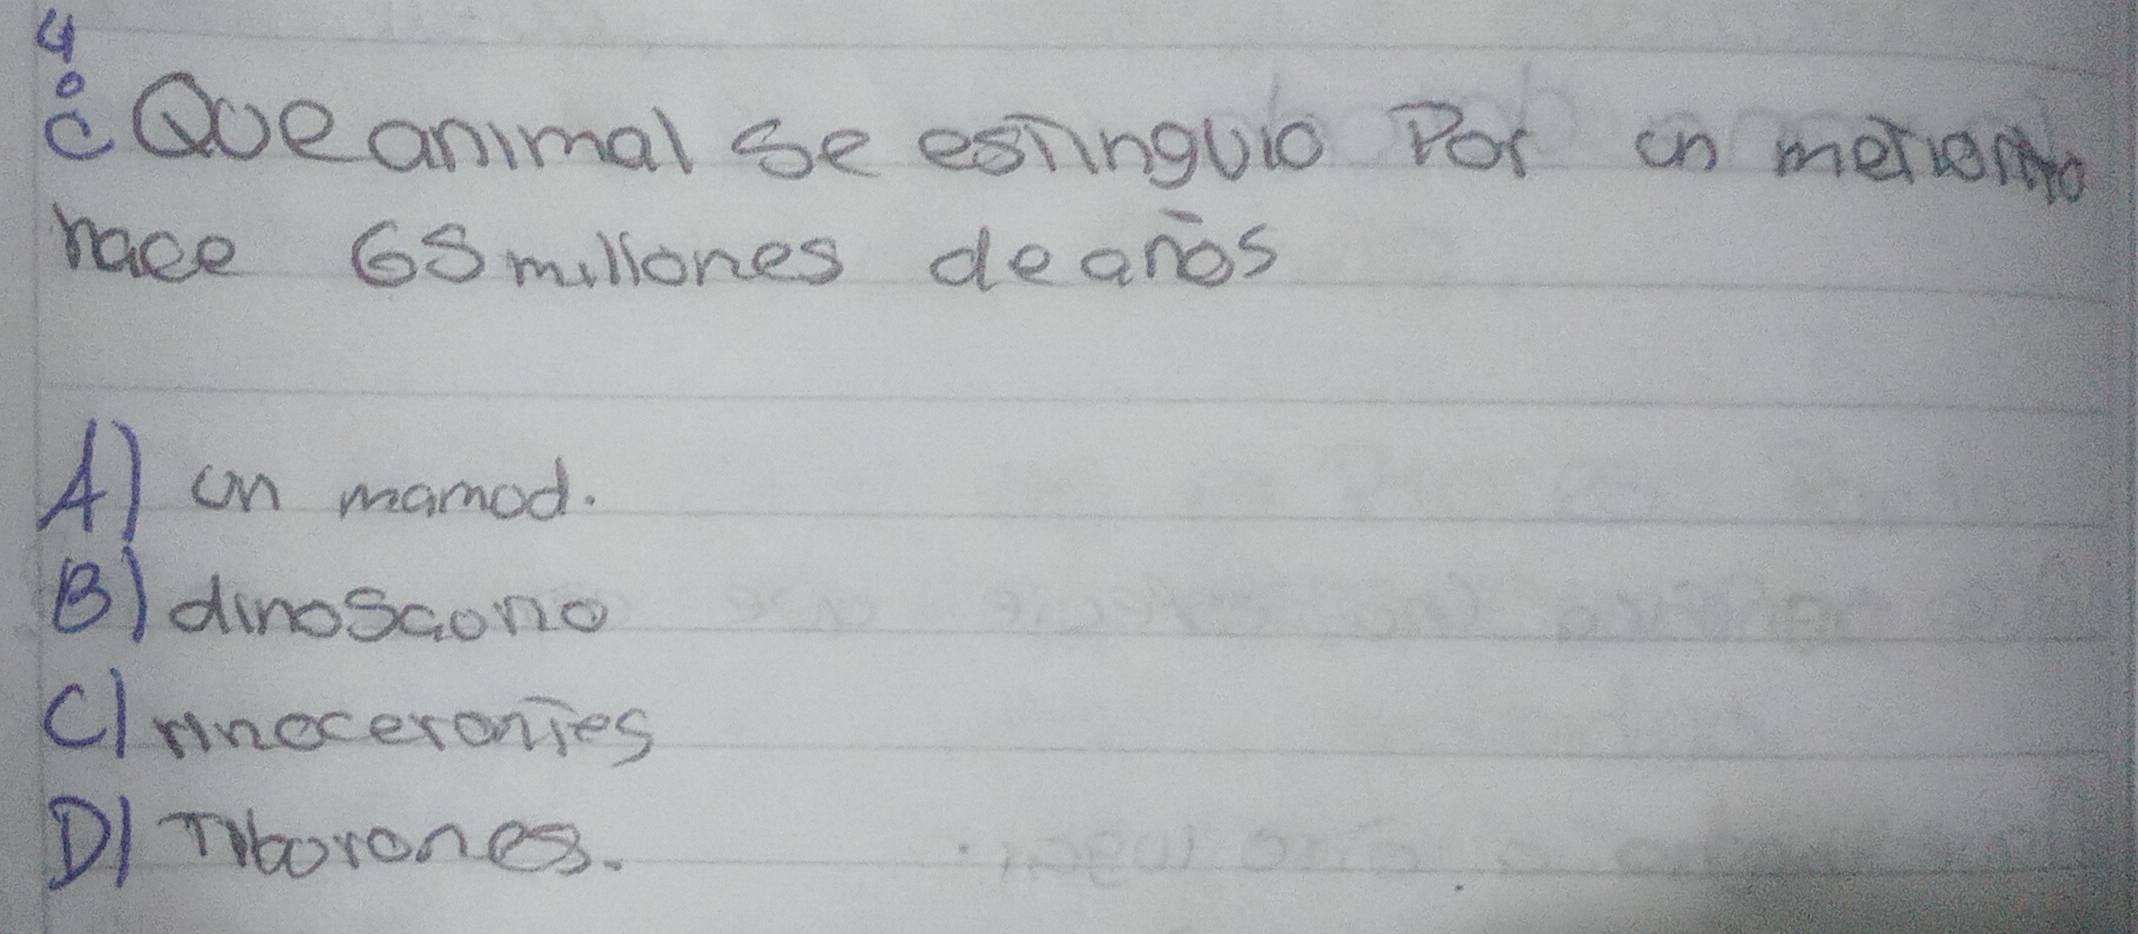 4
¿Que animal se estinguio Por un meteorito
hace 65 millones de años
A) un mamod.
B) dinosaorio
C) rinocerontes
D) Tiborones.